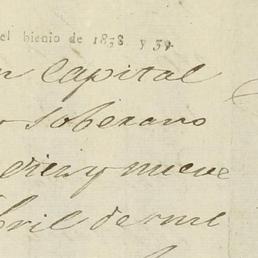 el bienio de 1838 y 39.
n Capital
soberano
diez y nueve
bril de mil